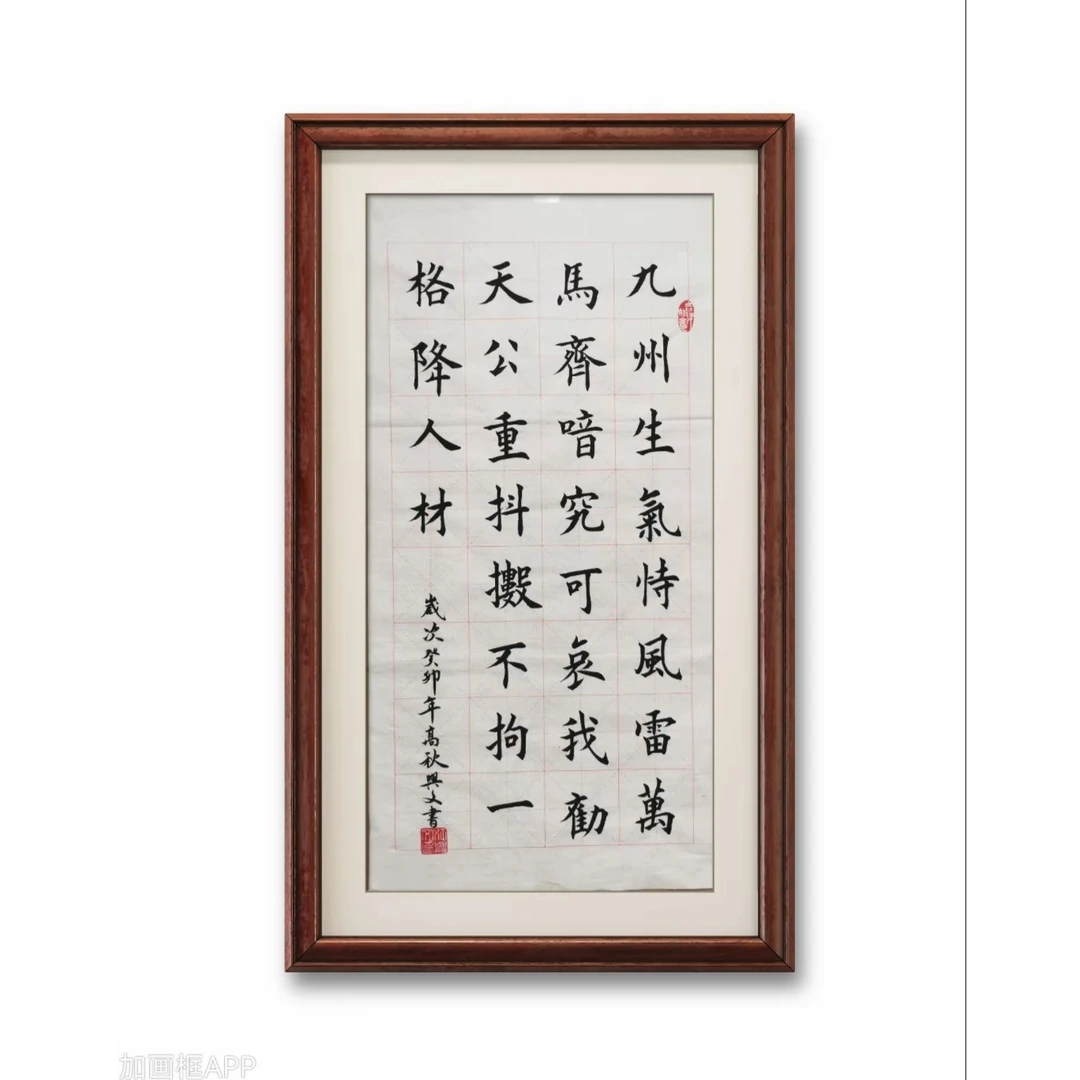 九州生氣恃風雷萬
馬齊喑究可哀我勸
天公重抖擻不拘一
格降人材
歲次癸卯年高秋興文書
加画框APP